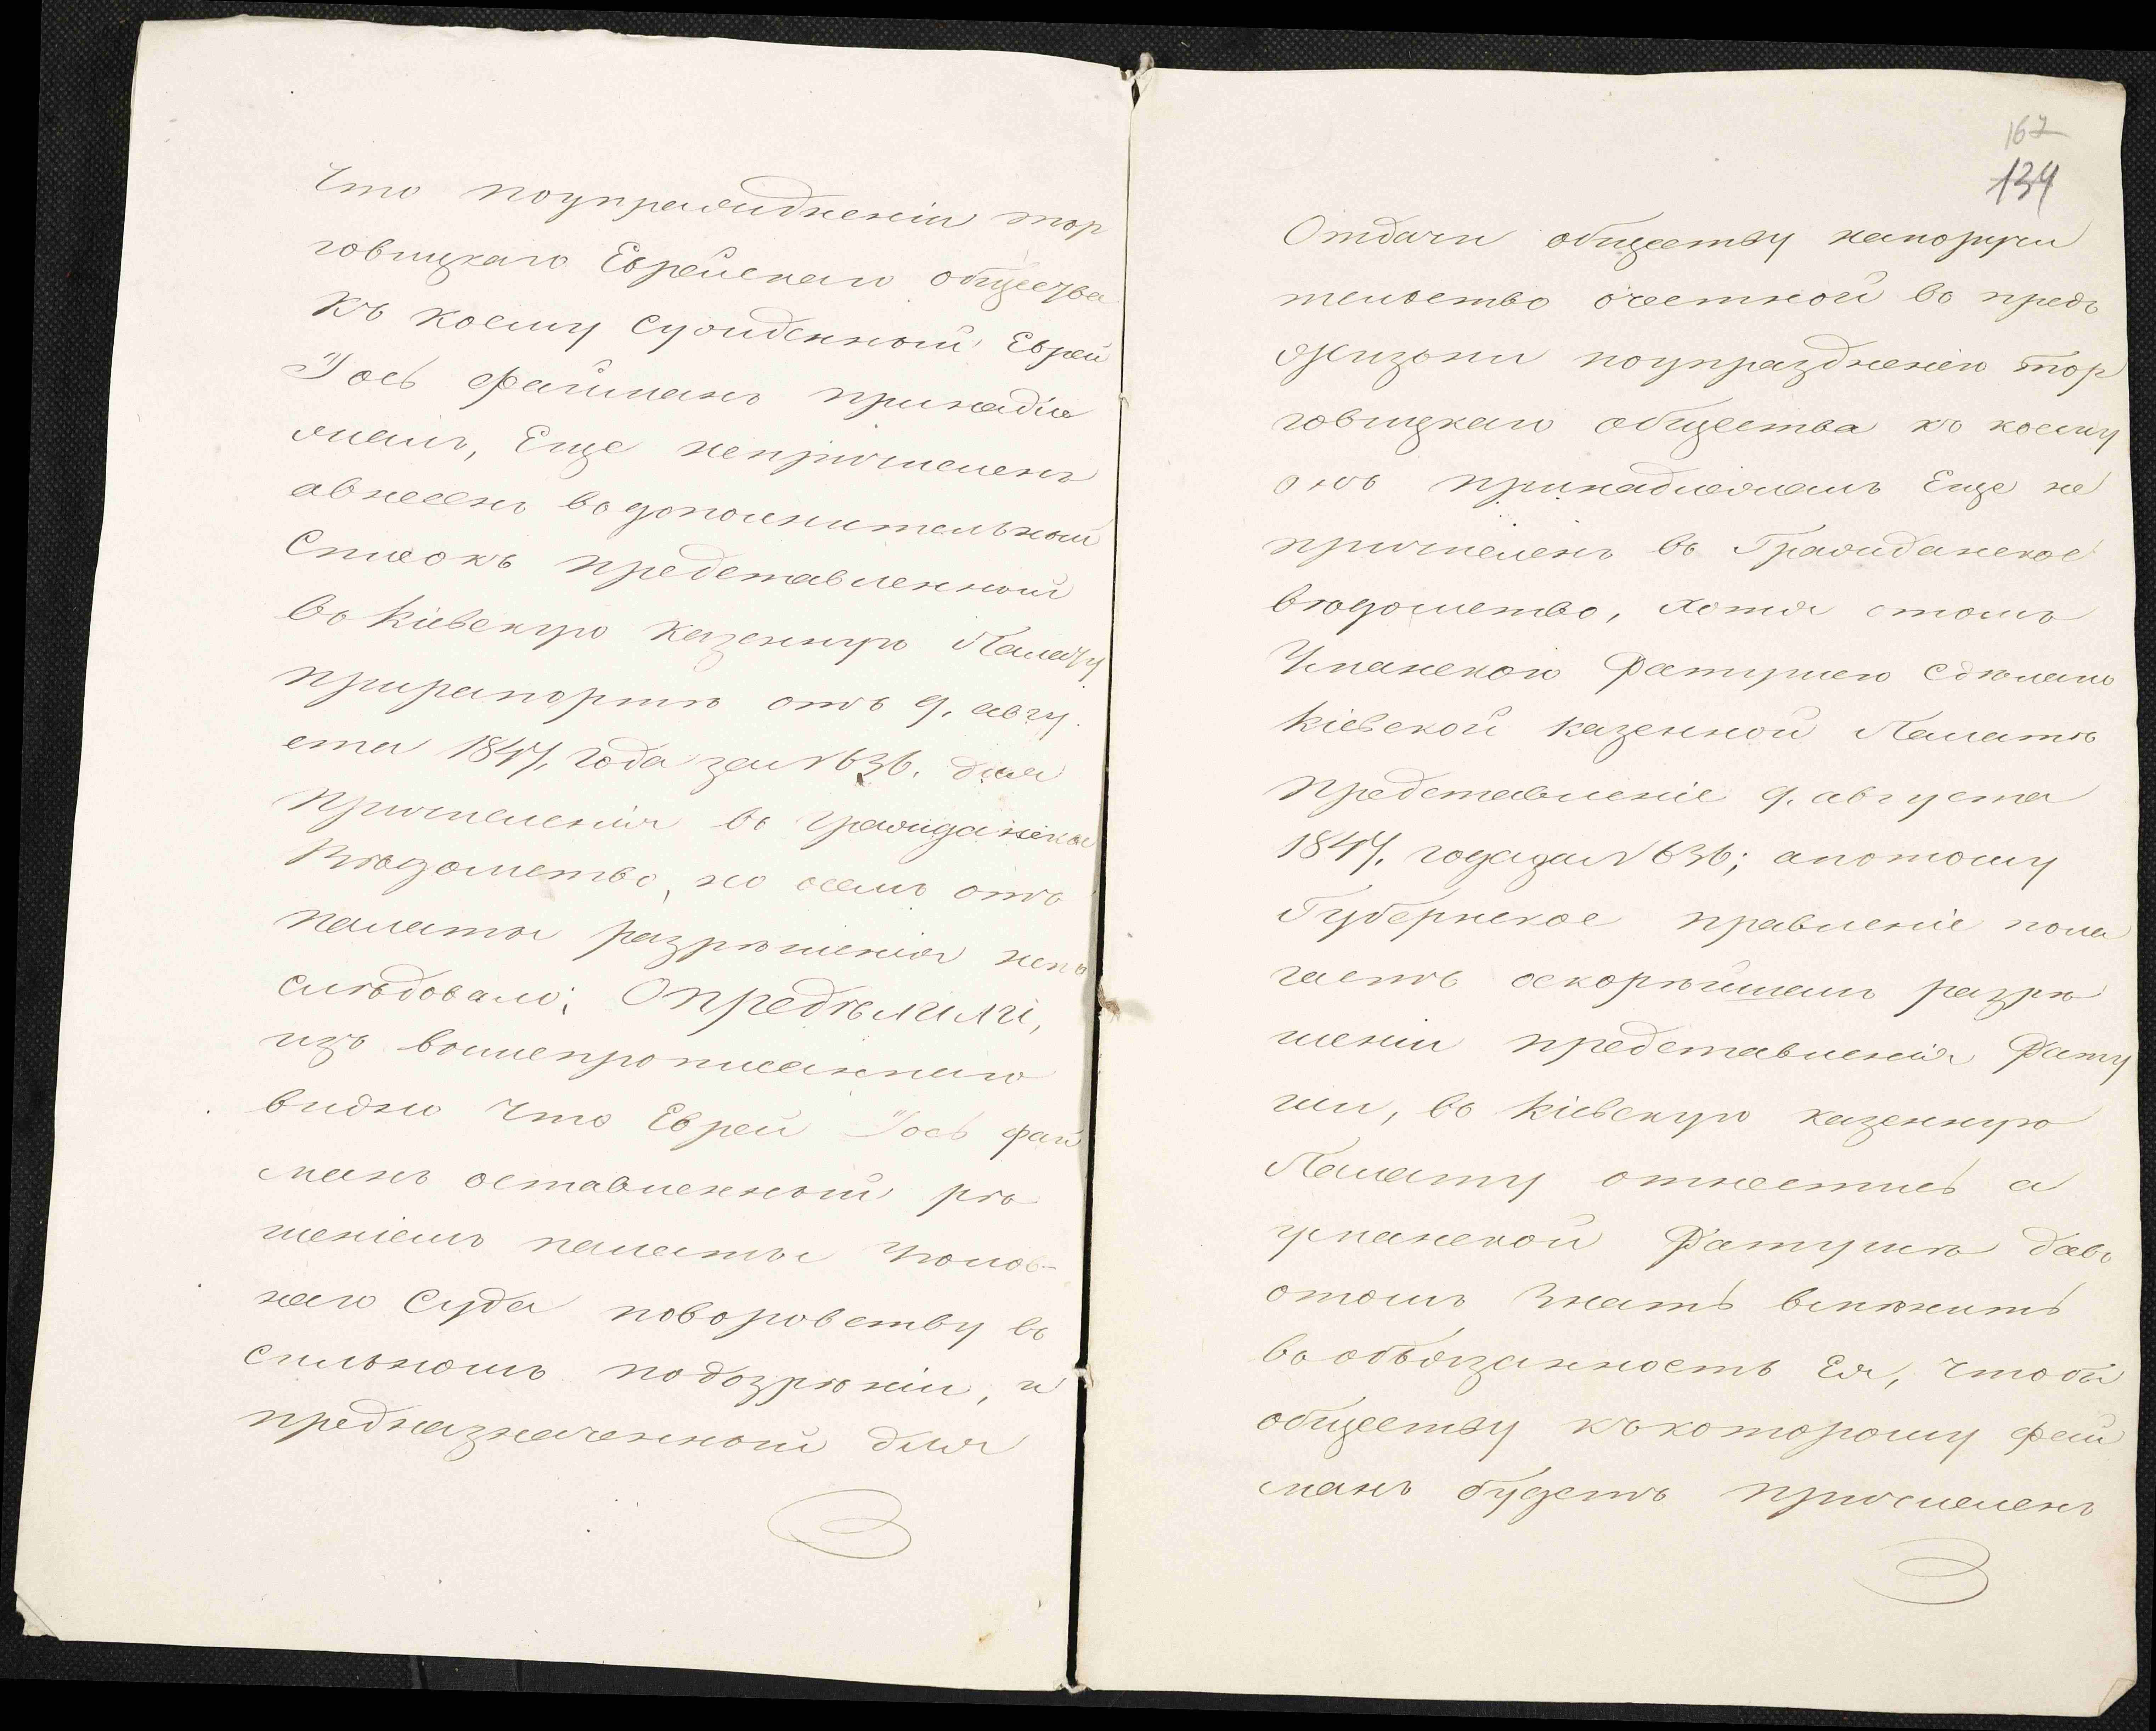 Что поупраждненіи тор
говицкаго Еврейскаго общества
къ коему сужденный Еврей
Іось Файманъ принадле
жалъ, Еще непричисленъ
авнесенъ водополнительный
Списокъ представленный
во Кіевскую Казенную Палату
прирапортѣ отъ 9. авгу
ста 1847, года за № 636. для
причисленія во гражданское
Вѣдомство, но осемъ отъ
палаты разрѣшенія непо
слѣдовало; Опредѣлили,
изъ вышепрописаннаго
видно что Еврей Іось Фай
манъ оставленный рѣ
шеніемъ палаты Уголов-
наго Суда поворовству во
сильномъ подозрѣніи, и
предназначенный для
167
134
Отдачи обществу напоручи
тельство очестной во предь
жизни поупраздненію тор
говицкаго общества къ коему
онъ принадлежалъ Еще не
причисленъ во Гражданское
вѣдомство, хотя отомъ
Уманскою Ратушею сдѣлано
Кіевской Казенной Палатѣ
представленіе 9. августа
1847, года за № 636; апотому
Губернское правленіе пола
гаетъ оскорѣйшемъ разрѣ
шеніи представленія Рату
ши, во Кіевскую казенную
Палату отнестись а
уманской Ратушѣ давъ
отомъ знать вмѣнить
во обьязанность Ея, чтобы
обществу къкоторому Фай
манъ будетъ причисленъ